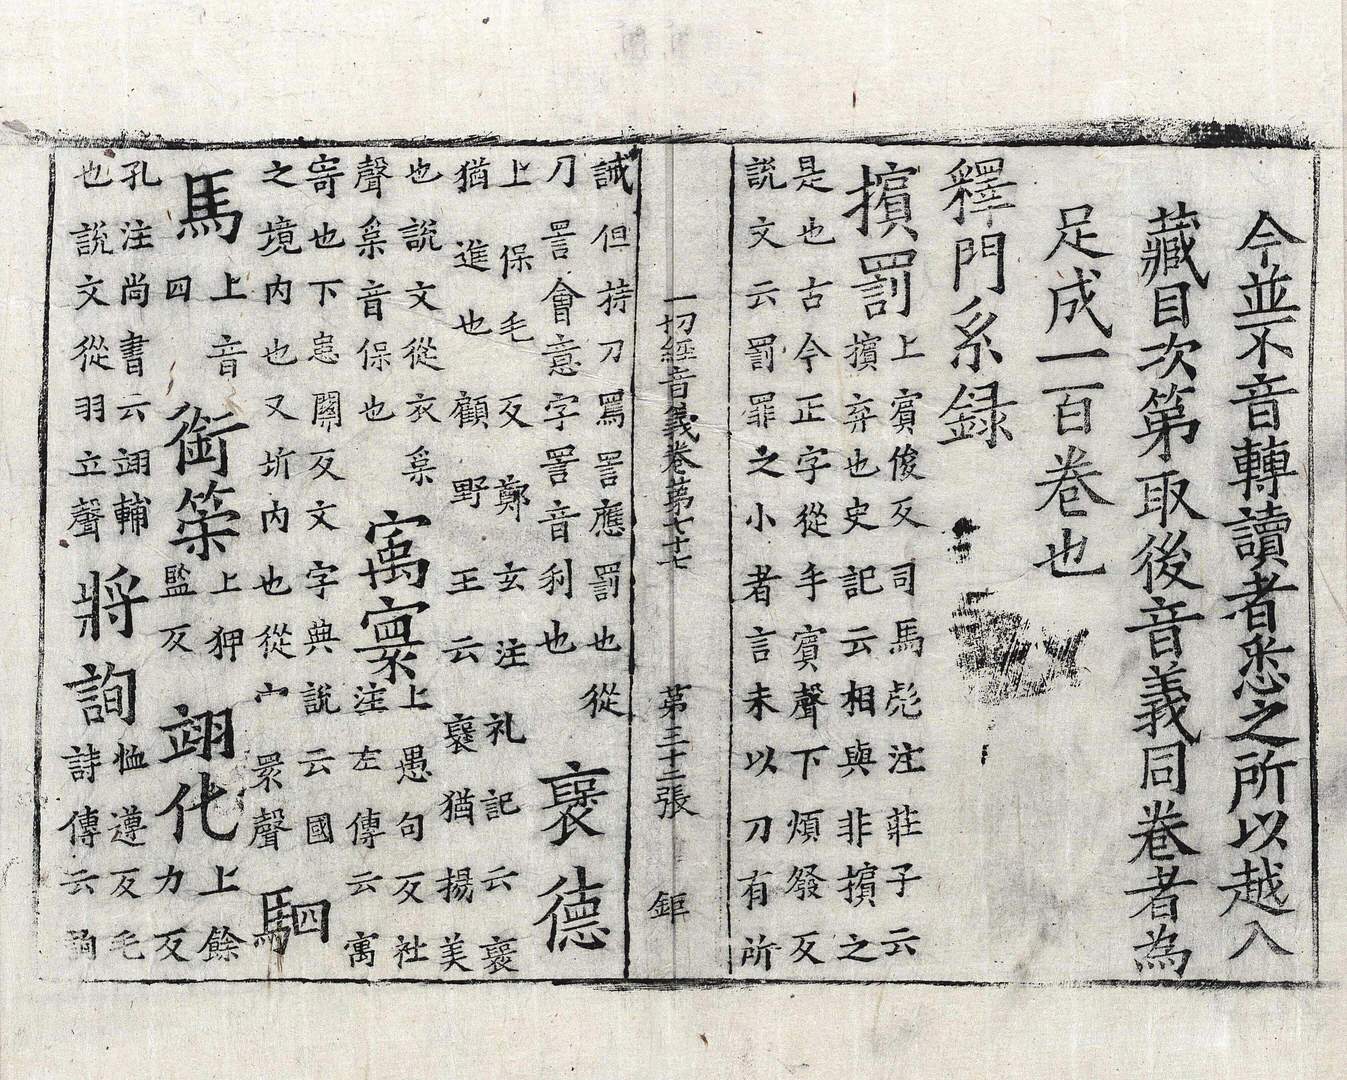 今並不音轉讀者悉之所以越入
藏目次第取後音義同卷者為
足成一百卷也
釋門系録
擯罰 上賓俊反司馬彪注莊子云
擯弃也史記云相與非擯之
是也古今正字從手賓聲下煩發反
說文云罰罪之小者言未以刀有所
一切經音義卷第七十七 第三十二張 鉅
誡但持刀罵詈應罰也從
刀詈會意字詈音利也 褒德
上保毛反鄭玄注礼記云褒
猶進也顧野王云襃猶揚美
也說文從衣𣎼
聲𣎼音保也 寓寰 上愚句反社
注左傳云寓
寄也下患關反文字典說云國
之境内也又圻内也從宀睘聲 駟
馬 上音
四 銜策 上狎
監反 翊化 上餘
力反
孔注尚書云翊輔
也說文從羽立聲 將詢 恤遵反毛
詩傳云詢